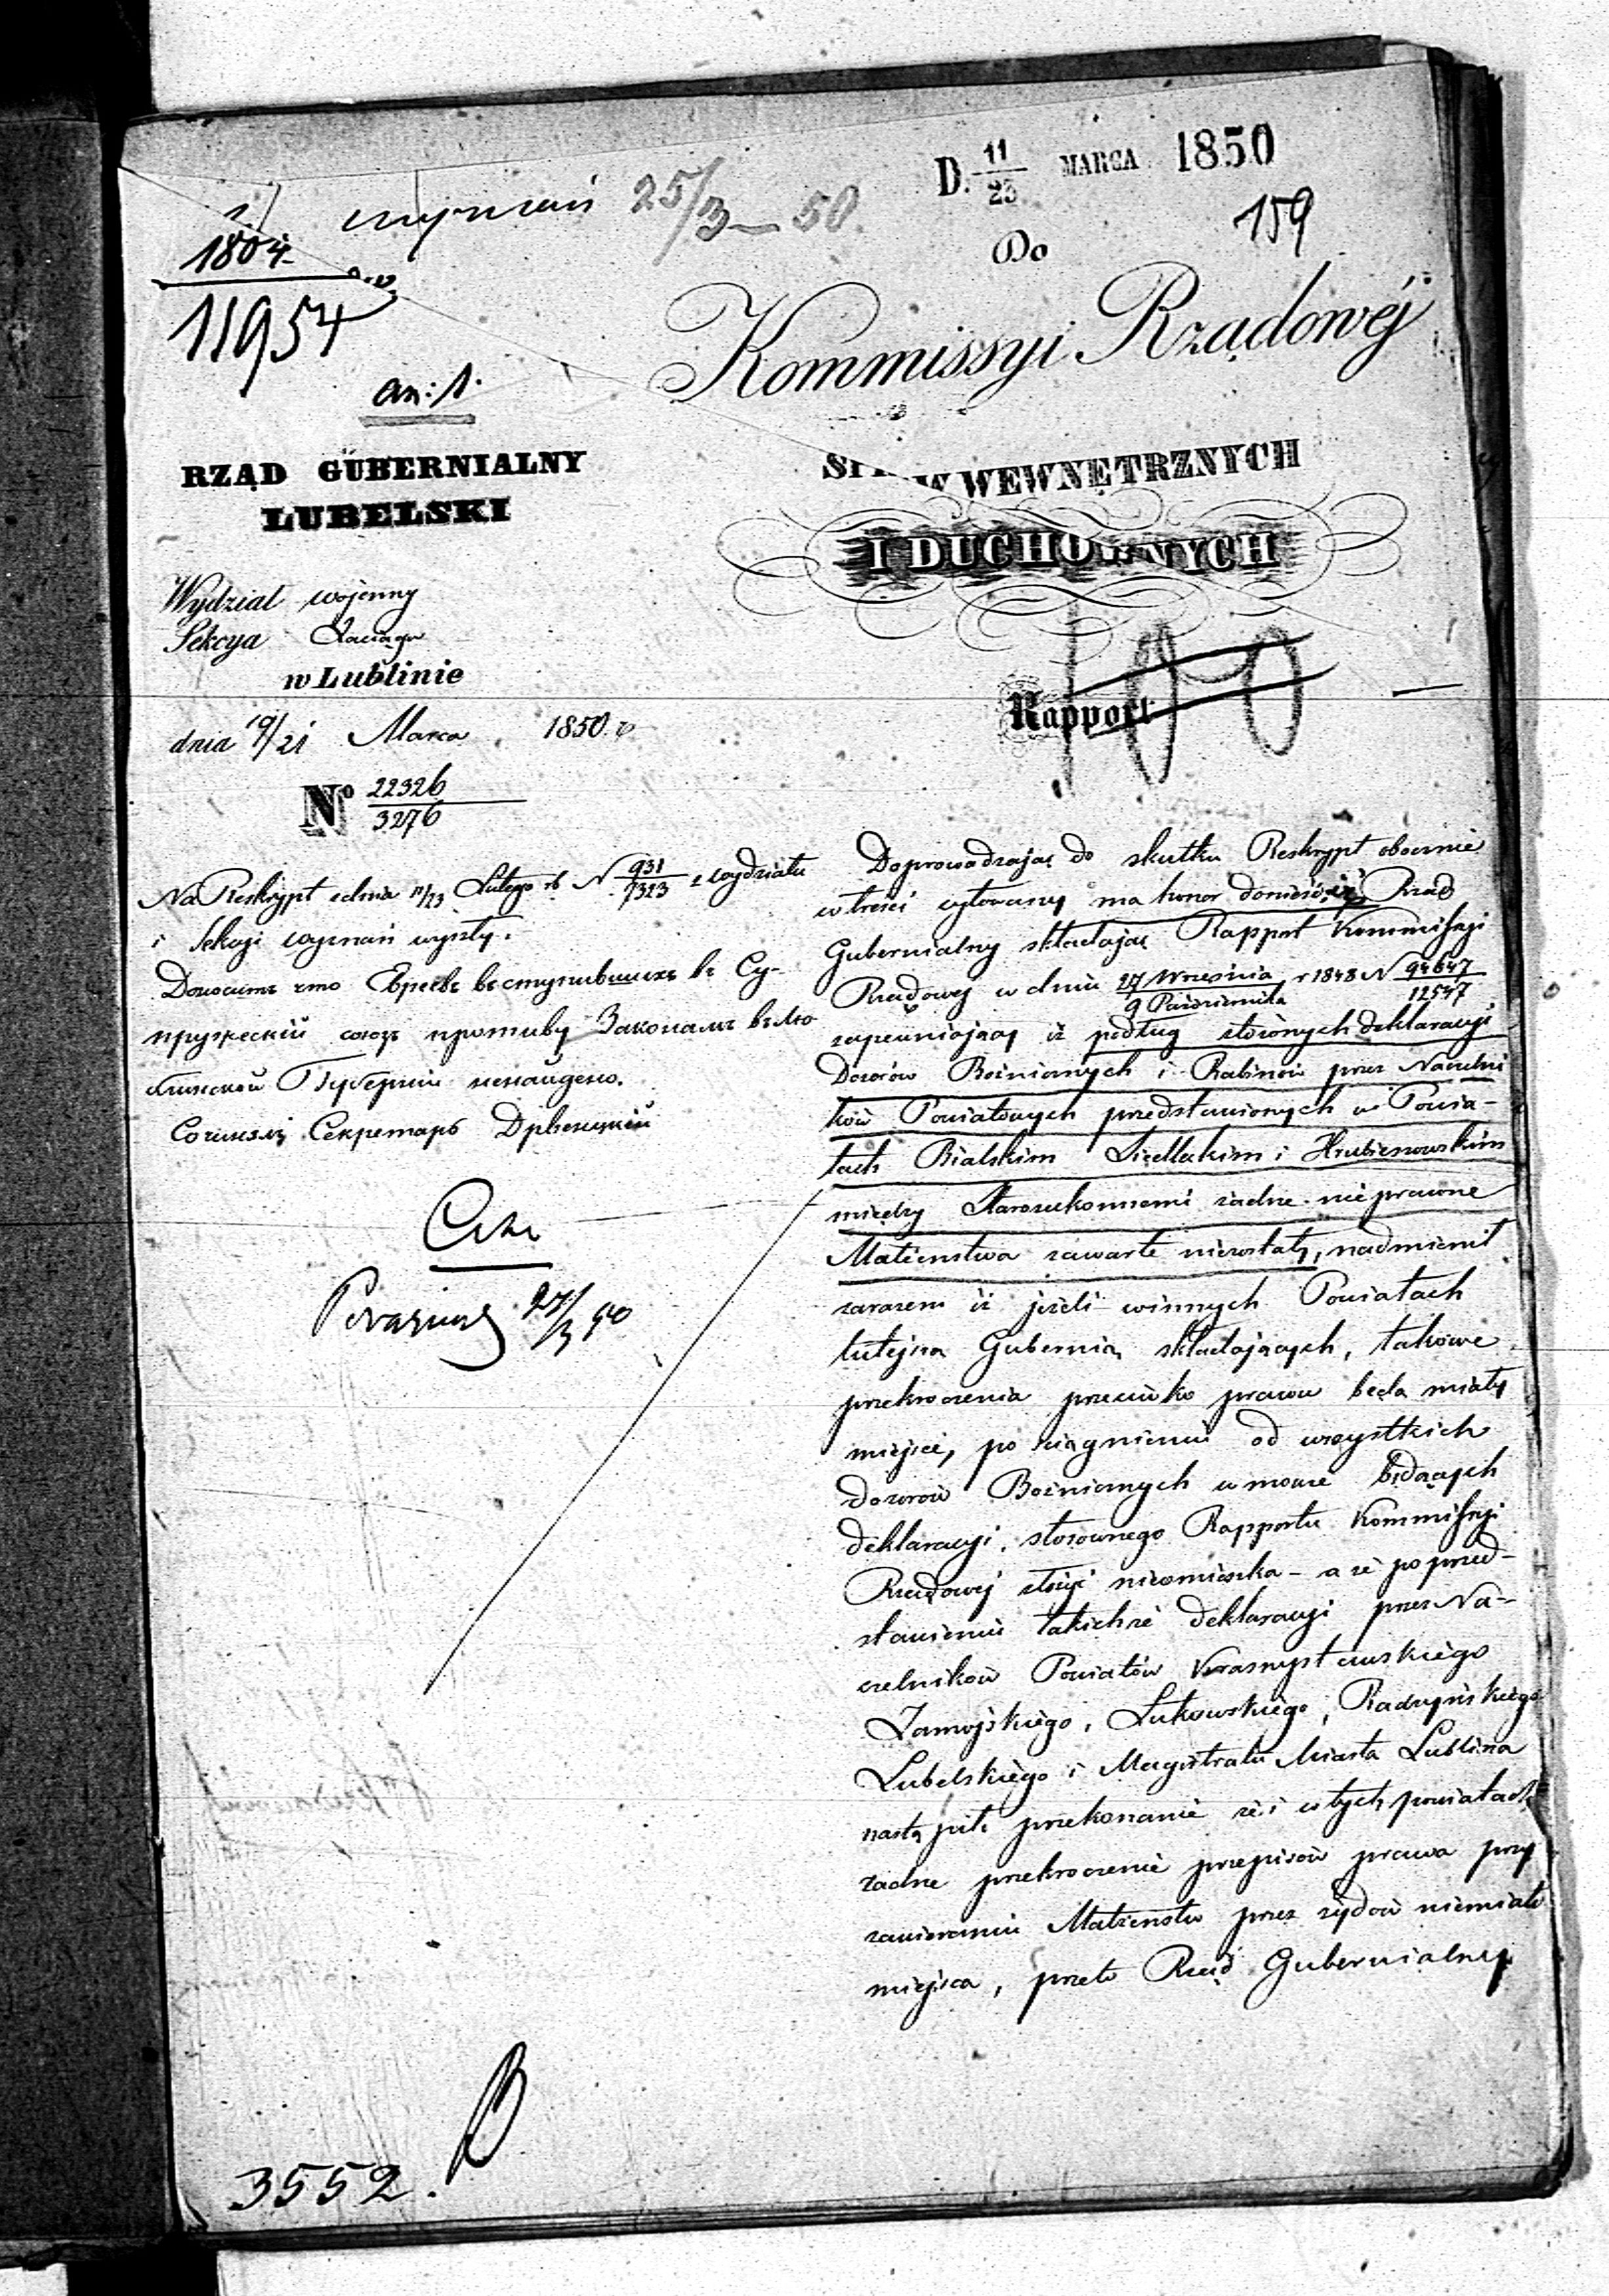 D. 11/23 MARCA 1850
wyznań 25/3 – 50
159
1804
11954
an: 1.
Do
Kommissyi Rządowéj
SPRAW WEWNĘTRZNYCH
I DUCHOWNYCH
Rapport
RZĄD GUBERNIALNY
LUBELSKI
Wydział wojenny
Sekcya Zaciągu
w Lublinie
dnia 9/21 Marca 1850 r
No 22326/3276
Na Reskrypt z dnia 11/23 Lutego rb N 931/7323 z wydziału
i Sekcyi wyznań wyszły.
Доноситъ что Евреевъ вступившихъ въ Су-
пружескій союзъ противу Законамъ въ Лю
блинской Губерніи ненайдено.
Сочинялъ Секретарь
27/3 50
Doprowadzając do skutku Reskrypt obocznie
w treści cytowany ma honor donieść, iż Rząd
Gubernialny składając Rapport Kommissyi
Rządowej w dniu 27 Września/9 Października r 1848 N 94647/12547
zapewniający iż podług złożonych deklaracyi
Dozorów Bożniczych i Rabinów przez Naczelni
ków Powiatowych przedstawionych w Powia-
tach Bialskim Siedleckim i Hrubieszowskim
między Starozakonnemi żadne nieprawne
Małżeństwa zawarte niezostały, nadmienił
zarazem iż jeżeli winnych Powiatach
tutejszą Gubernią składających, takowe
przekroczenia przeciwko prawu będą miały
miejsce, po ściągnieniu od wszystkich
dozorów Bożniczych w mowie będących
deklaracyi, stosownego Rapportu Kommissyi
Rządowej złożyć nieomieszka – a że po przed-
stawieniu takichże deklaracyi przez Na-
czelników Powiatów Krasnystawskiego
Zamojskiego, Łukowskiego, Radzyńskiego
Lubelskiego i Magistratu Miasta Lublina
nastąpiło przekonanie że i w tych powiatach
żadne przekroczenie przepisów prawa przy
zawieraniu Małżeństw przez żydów niemiało
miejsca, przeto Rząd Gubernialny
3552.